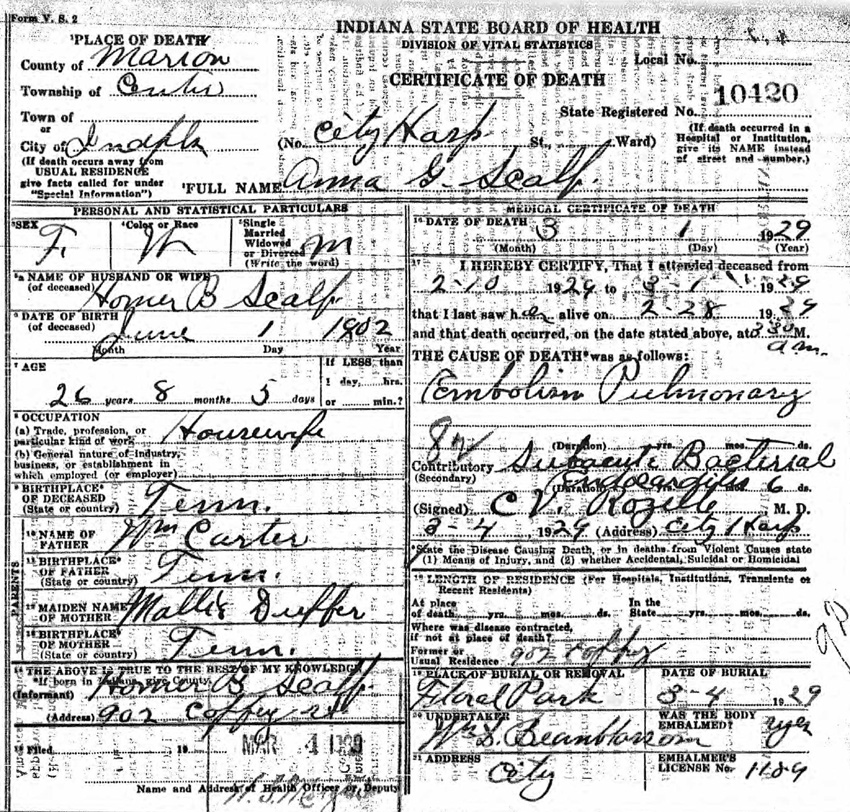 Form V. S. 2
INDIANA STATE BOARD OF HEALTH
DIVISION OF VITAL STATISTICS
CERTIFICATE OF DEATH
Local No.
State Registered No. 10420
¹PLACE OF DEATH
County of Marion
Township of Center
Town of
or
City of Indpls
(If death occurs away from
USUAL RESIDENCE
give facts called for under
"Special Information")
(No. City Hosp St., Ward)
(If death occurred in a
Hospital or Institution,
give its NAME instead
of street and number.)
²FULL NAME Anna G. Scalf
PERSONAL AND STATISTICAL PARTICULARS
³SEX F.
⁴Color or Race W
⁵Single
Married
Widowed
or Divorced M
(Write the word)
⁵ᵃ NAME OF HUSBAND OR WIFE
(of deceased) Homer B Scalf
⁶ DATE OF BIRTH
June 1 1802
Month Day Year
⁷ AGE
26 years 8 months 5 days
If LESS than
1 day, hrs.
or min.?
⁸ OCCUPATION
(a) Trade, profession, or
particular kind of work Housewife
(b) General nature of industry,
business, or establishment in
which employed (or employer)
⁹ BIRTHPLACE
OF DECEASED
(State or country) Tenn.
PARENTS
¹⁰ NAME OF
FATHER Wm Carter
¹¹ BIRTHPLACE
OF FATHER
(State or country) Tenn.
¹² MAIDEN NAME
OF MOTHER Mallie
¹³ BIRTHPLACE
OF MOTHER
(State or country) Tenn.
¹⁴ THE ABOVE IS TRUE TO THE BEST OF MY KNOWLEDGE
*If born in Indiana, give County.
(Informant) Homer B Scalf
(Address) 902 Coffey st
¹⁵ Filed 19
MAR 4 1929
Name and Address of Health Officer or Deputy
MEDICAL CERTIFICATE OF DEATH
¹⁶ DATE OF DEATH 3 1 1929
(Month) (Day) (Year)
¹⁷ I HEREBY CERTIFY, That I attended deceased from
2-10 1929 to 3-1 1929
that I last saw her alive on 2-28 1929
and that death occurred, on the date stated above, at 3 30 M.
a m.
THE CAUSE OF DEATH* was as follows:
Embolism Pulmonary
(Duration) yrs. mos. ds.
Contributory Subacute Bacterial
(Secondary) Endocarditis
(Duration) mos 6 ds.
(Signed) C V. Rozelle M. D.
3-4 1929 (Address) City Hosp
*State the Disease Causing Death, or in deaths from Violent Causes state
(1) Means of Injury, and (2) whether Accidental, Suicidal or Homicidal
¹⁸ LENGTH OF RESIDENCE (For Hospitals, Institutions, Transients or
Recent Residents)
At place
of death yrs. mos. ds.
In the
State yrs. mos. ds.
Where was disease contracted,
if not at place of death?
Former or
Usual Residence 902 Coffey
¹⁹ PLACE OF BURIAL OR REMOVAL
Floral Park
DATE OF BURIAL
3-4 1929
²⁰ UNDERTAKER
Wm D. Beamblossom
WAS THE BODY
EMBALMED? yes
²¹ ADDRESS
City
EMBALMER'S
LICENSE No. 1189